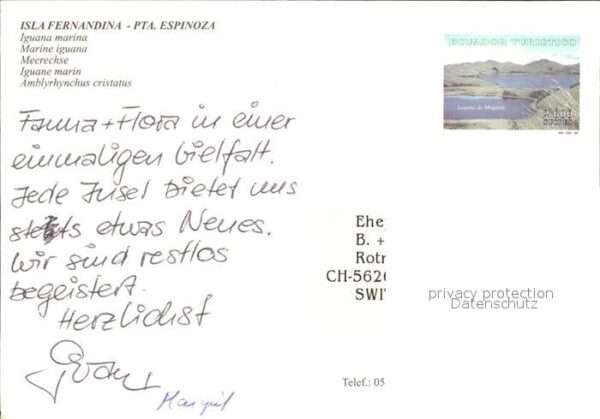 ISLA FERNANDINA - PTA. ESPINOZA
Iguana marina
Marine iguana
Meerechse
Iguane marin
Amblyrhynchus cristatus
Fauna + Flora in einer
einmaligen Vielfalt.
Jede Insel bietet uns
stets etwas Neues.
Wir sind restlos
begeistert.
Herzlichst
ECUADOR TURISTICO
Laguna de Mojanda
SUCRES
Ehe
B. +
Rotr
CH-5626
SWIT
privacy protection
Datenschutz
Telef.: 05